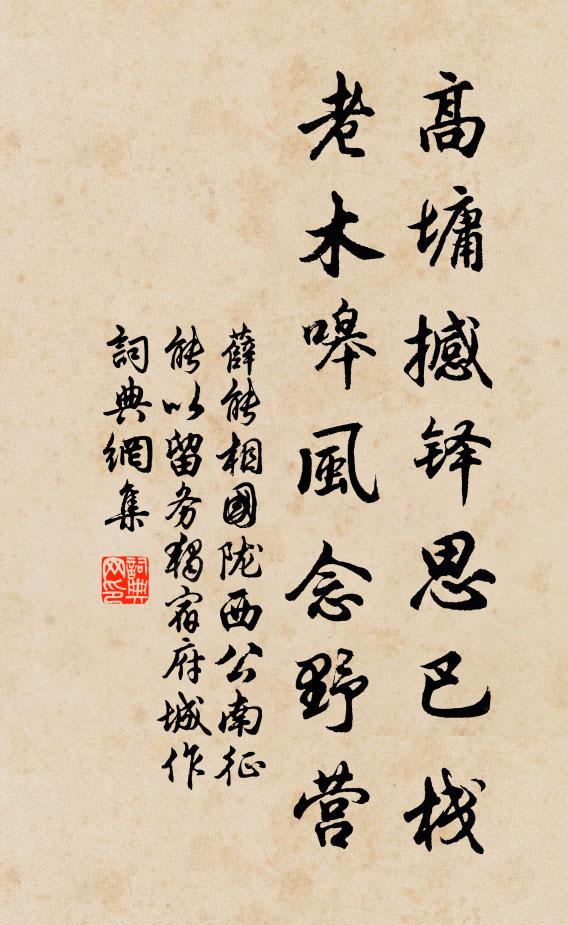 高墉撼铎思巴栈
老木嗥風念野营
薛能相國陇西公南征
能以留务独宿府城作
詞典網集
詞典网印